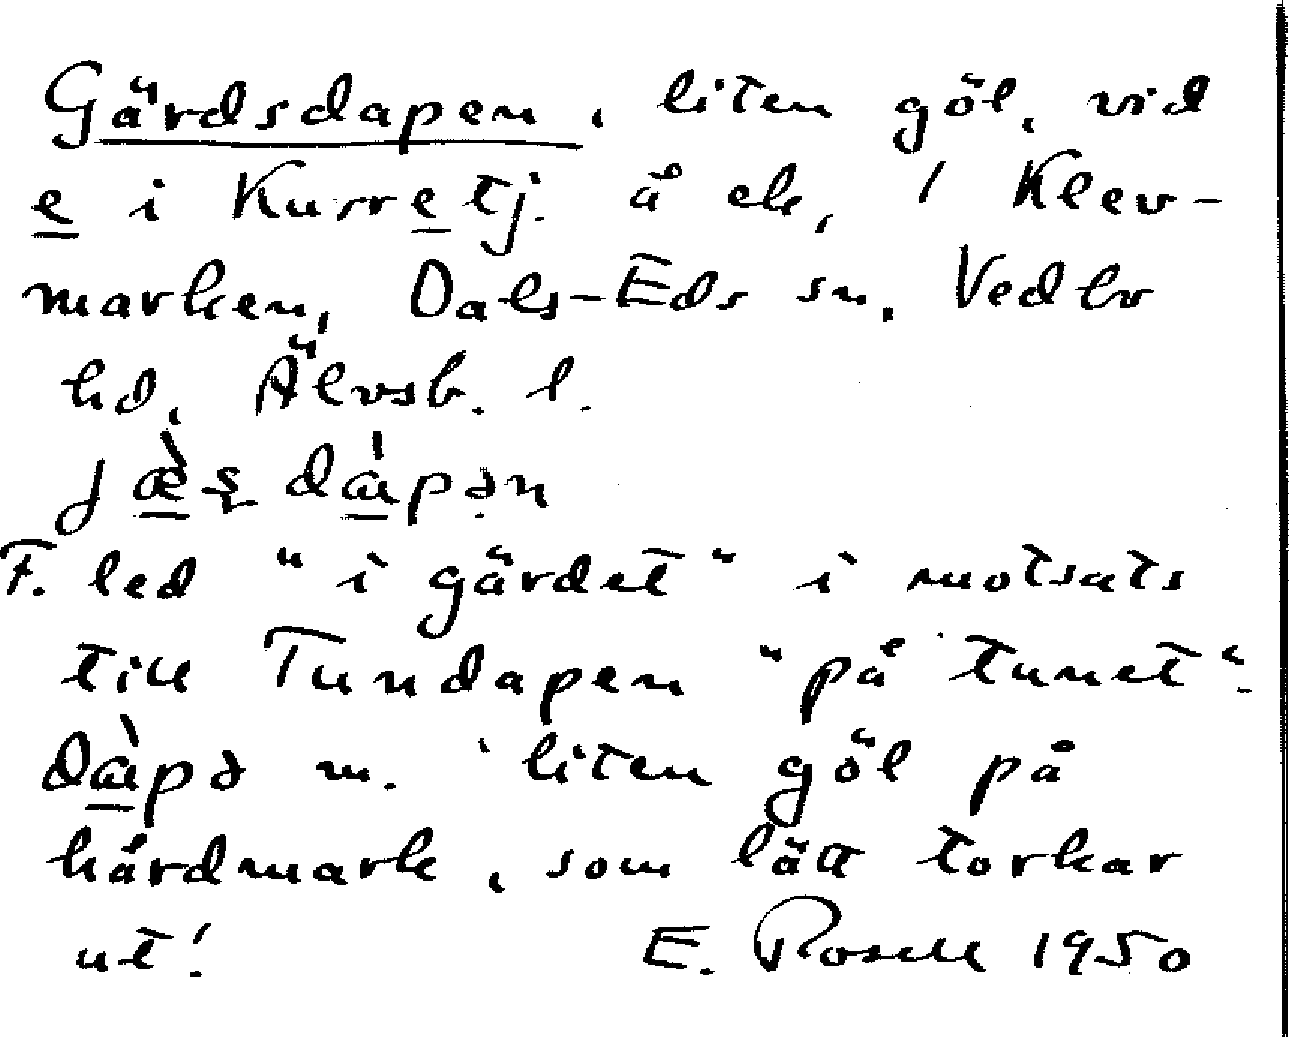 Gärdsdapen, liten göl, vid
e i Kurretj. å ek, 1 Klev-
marken, Dals-Eds sn, Vedbo
hd, Älvsb. l.
F. led "i gärdet" i motsats
till Tundapen "på tunet".
m. 'liten göl på
hårdmark, som lätt torkar
ut'. E. Rosell 1950